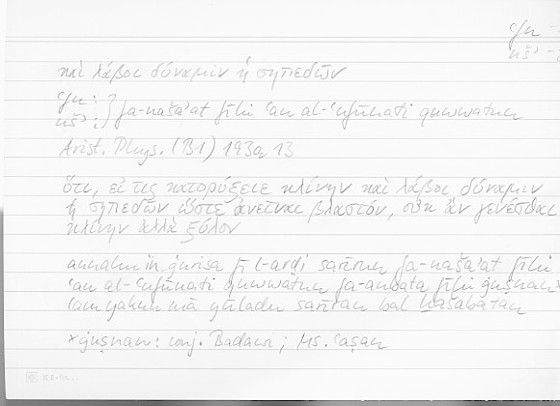 ʿfn –
nšʾ –
καὶ λάβοι δύναμιν ἡ σηπεδών
ʿfn : } fa-našaʾat fīhi ʿan al-ʿufūnati quwwatun
nšʾ :
Arist. Phys. (B1) 193a 13
ὅτι, εἴ τις κατορύξειε κλίνην καὶ λάβοι δύναμιν
ἡ σηπεδὼν ὥστε ἀνεῖναι βλαστόν, οὐκ ἂν γενέσθαι
κλίνην ἀλλὰ ξύλον
annahu in ġurisa fī l-arḍi sarīrun fa-našaʾat fīhi
ʿan al-ʿufūnati quwwatun fa-anbata fīhi ġuṣnan*
lam yakun mā yūladu sarīran bal ḫašabatan
* ġuṣnan: conj. Badawī; Ms.